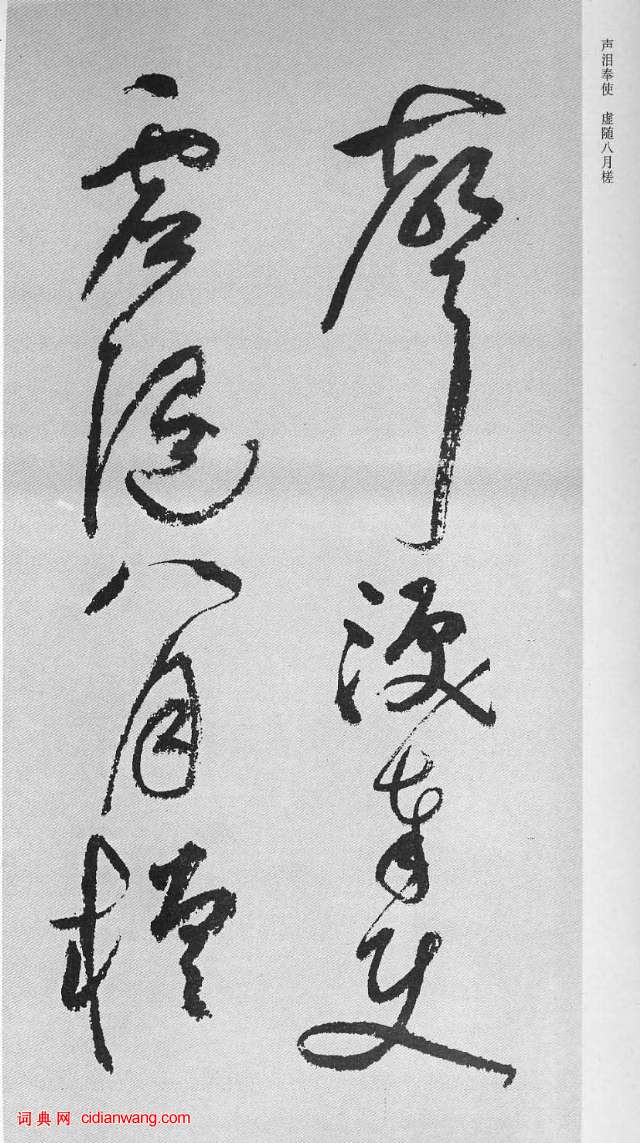 声泪奉使 虚随八月槎
聲淚奉使
虚随八月槎
词典网 cidianwang.com